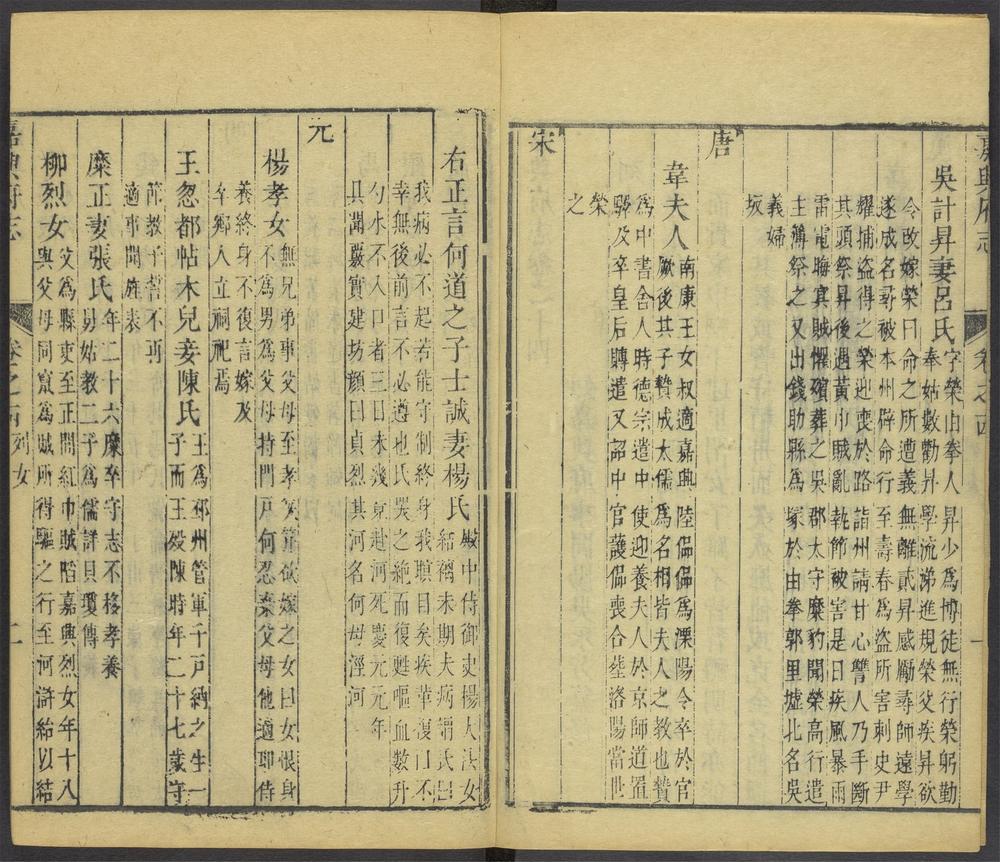 嘉興府志 卷之西 一
吳計昇妻呂氏 字榮由拳人昇少為博徒無行榮躬勤
奉姑數勸昇學流涕進規榮父疾昇欲
令改嫁榮曰命之所遭義無離貳昇感勵尋師遠學
遂成名尋被本州辟命行至壽春為盜所害刺史尹
耀捕盜得之榮迎喪於路詣州請甘心讐人乃手斷
其頭祭昇後遇黃巾賊亂執節被害是日疾風暴雨
雷電晦冥賊懼殯葬之吳郡太守糜豹聞榮高行遣
主簿祭之又出錢助縣為塚於由拳郭里墟北名吳
義婦
坂
唐
韋夫人 南康王女叔適嘉興陸偘偘為溧陽令卒於官
厥後其子贄成大儒為名相皆夫人之教也贄
為中書舍人時德宗遣中使迎養夫人於京師道置
驛及卒皇后賻遣又詔中官護偘喪合塟洛陽當世
榮
之
宋
右正言何道之子士誠妻楊氏 殿中侍御史楊大法女
結褵未期夫病謂氏曰
我病必不起若能守制終身我瞑目矣疾革復口不
幸無後前言不必遵也氏哭之絶而復甦嘔血數升
勺水不入口者三日未幾竟赴河死慶元元年
具聞覈實建坊顏曰貞烈其河名何母涇河
元
楊孝女 無兄弟事父母至孝父笄欲嫁之女曰女恨身
不為男為父母持門戶何忍棄父母他適耶侍
養終身不復言嫁及
卒鄉人立祠祀焉
王忽都帖木兒妾陳氏 王為邳州管軍千戶納之生一
子而王歿陳時年二十七歲守
節教子誓不再
適事聞旌表
糜正妻張氏 年二十六糜卒守志不移孝養
舅姑教二子為儒詳貝瓊傳
柳烈女 父為縣吏至正間紅巾賊陷嘉興烈女年十八
與父母同竄為賊所得驅之行至河滸紿以結
嘉興府志 卷之西 列女 二